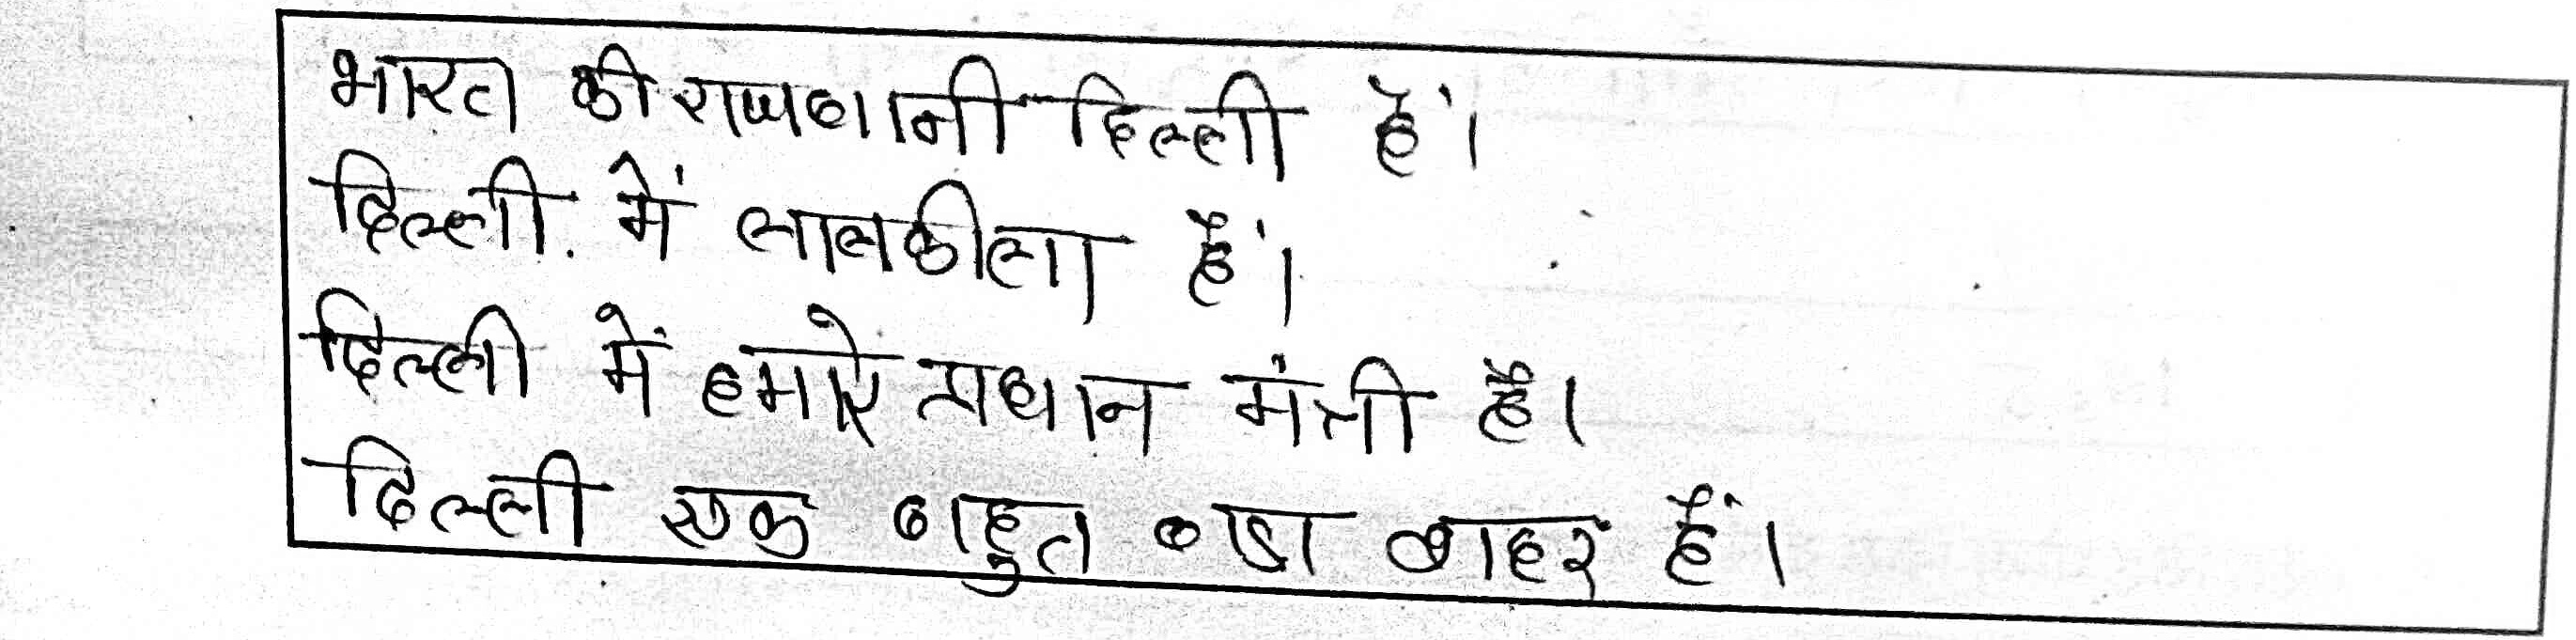 भारत की राजधानी दिल्ली हैं।
दिल्ली में लालकीला हैं।
दिल्ली में हमारे प्रधान मंत्री है।
दिल्ली एक बहुत बडा शहर हैं।